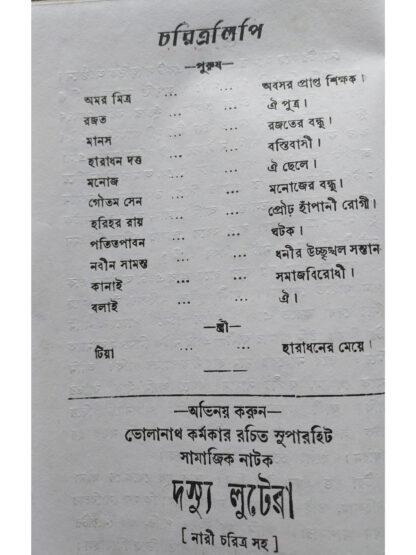 চরিত্রলিপি
—পুরুষ—
অমর মিত্র ... ... অবসর প্রাপ্ত শিক্ষক।
রজত ... ... ঐ পুত্র।
মানস ... ... রজতের বন্ধু।
হারাধন দত্ত ... ... বস্তিবাসী।
মনোজ ... ... ঐ ছেলে।
গৌতম সেন ... ... মনোজের বন্ধু।
হরিহর রায় ... ... প্রৌঢ় হাঁপানী রোগী।
পতিতপাবন ... ... ঘটক।
নবীন সামন্ত ... ... ধনীর উচ্ছৃঙ্খল সন্তান
কানাই ... ... সমাজবিরোধী।
বলাই ... ... ঐ।
—স্ত্রী—
টিয়া ... ... হারাধনের মেয়ে।
—অভিনয় করুন—
ভোলানাথ কর্মকার রচিত সুপারহিট
সামাজিক নাটক
দস্যু লুটেরা
[ নারী চরিত্র সহ ]